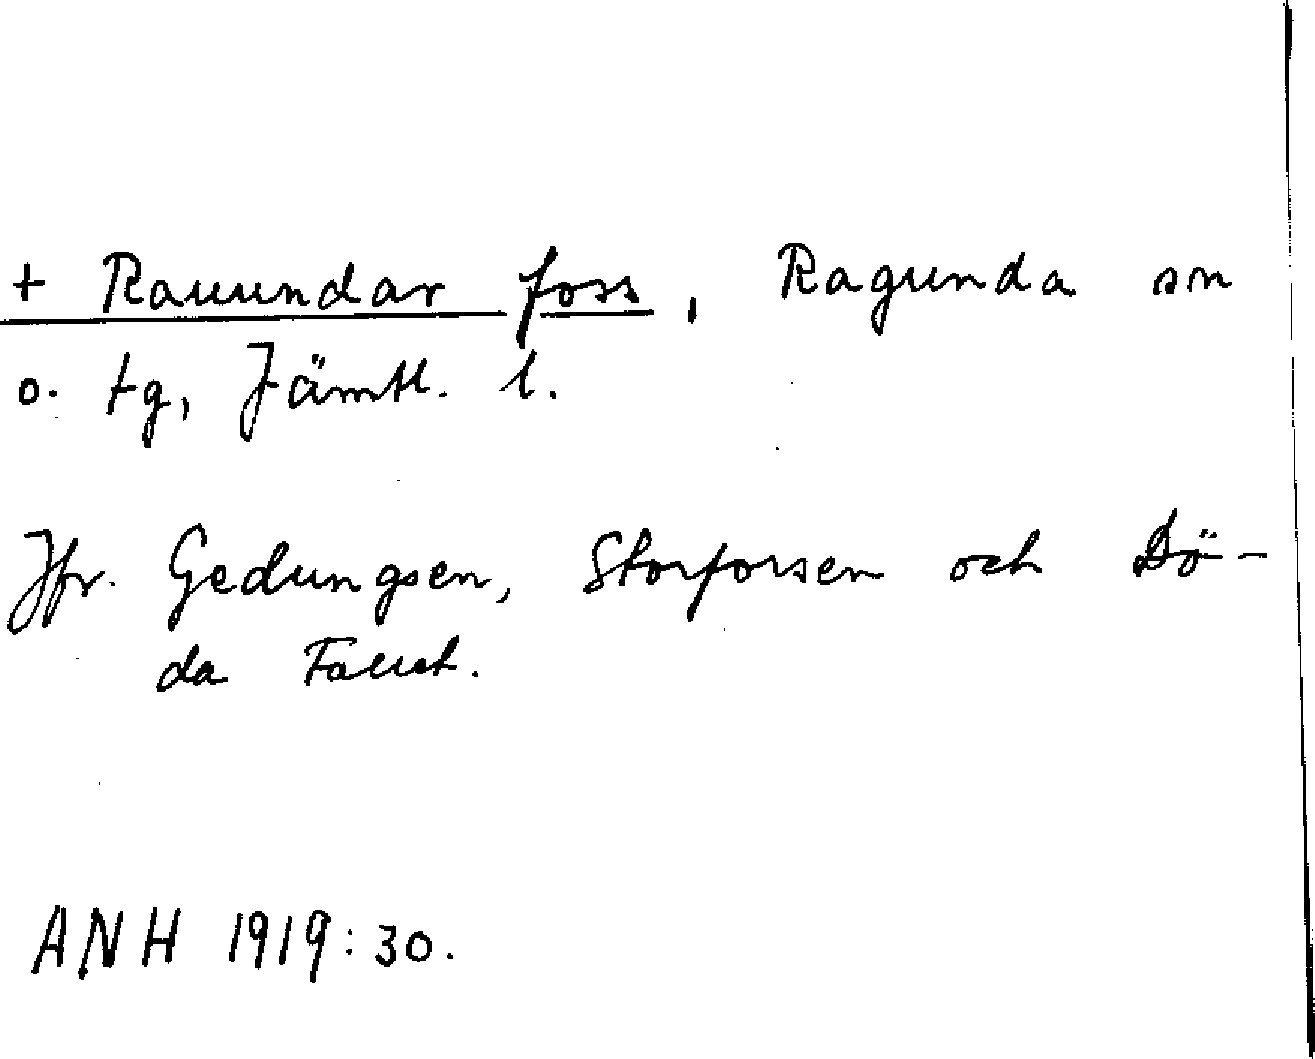 + Rauundar foss, Ragunda sn
o. tg, Jämtl. l.
Jfr. Gedungsen, Storforsen och Dö-
da Fallet.
ANH 1919:30.